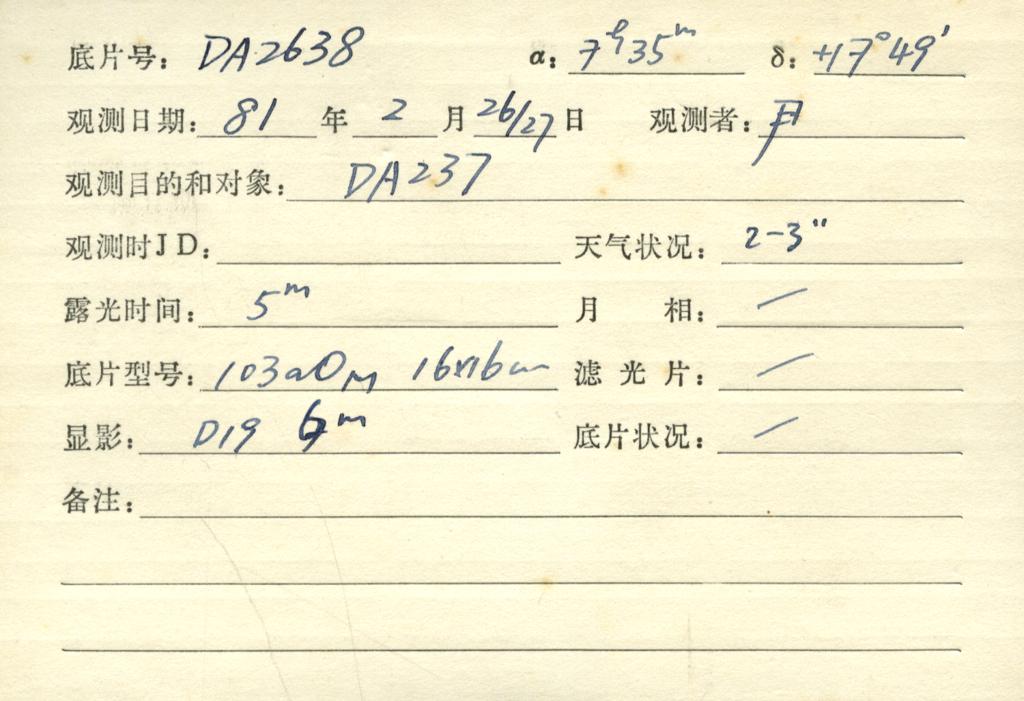 底片号：DA2638 α：7ʰ35ᵐ δ：+17°49′
观测日期：81年2月26/27日 观测者：
观测目的和对象：DA237
观测时JD： 天气状况：2-3"
露光时间：5ᵐ 月 相：/
底片型号：103aO 16x16cm 滤光片：/
显影：D19 6ᵐ 底片状况：/
备注：